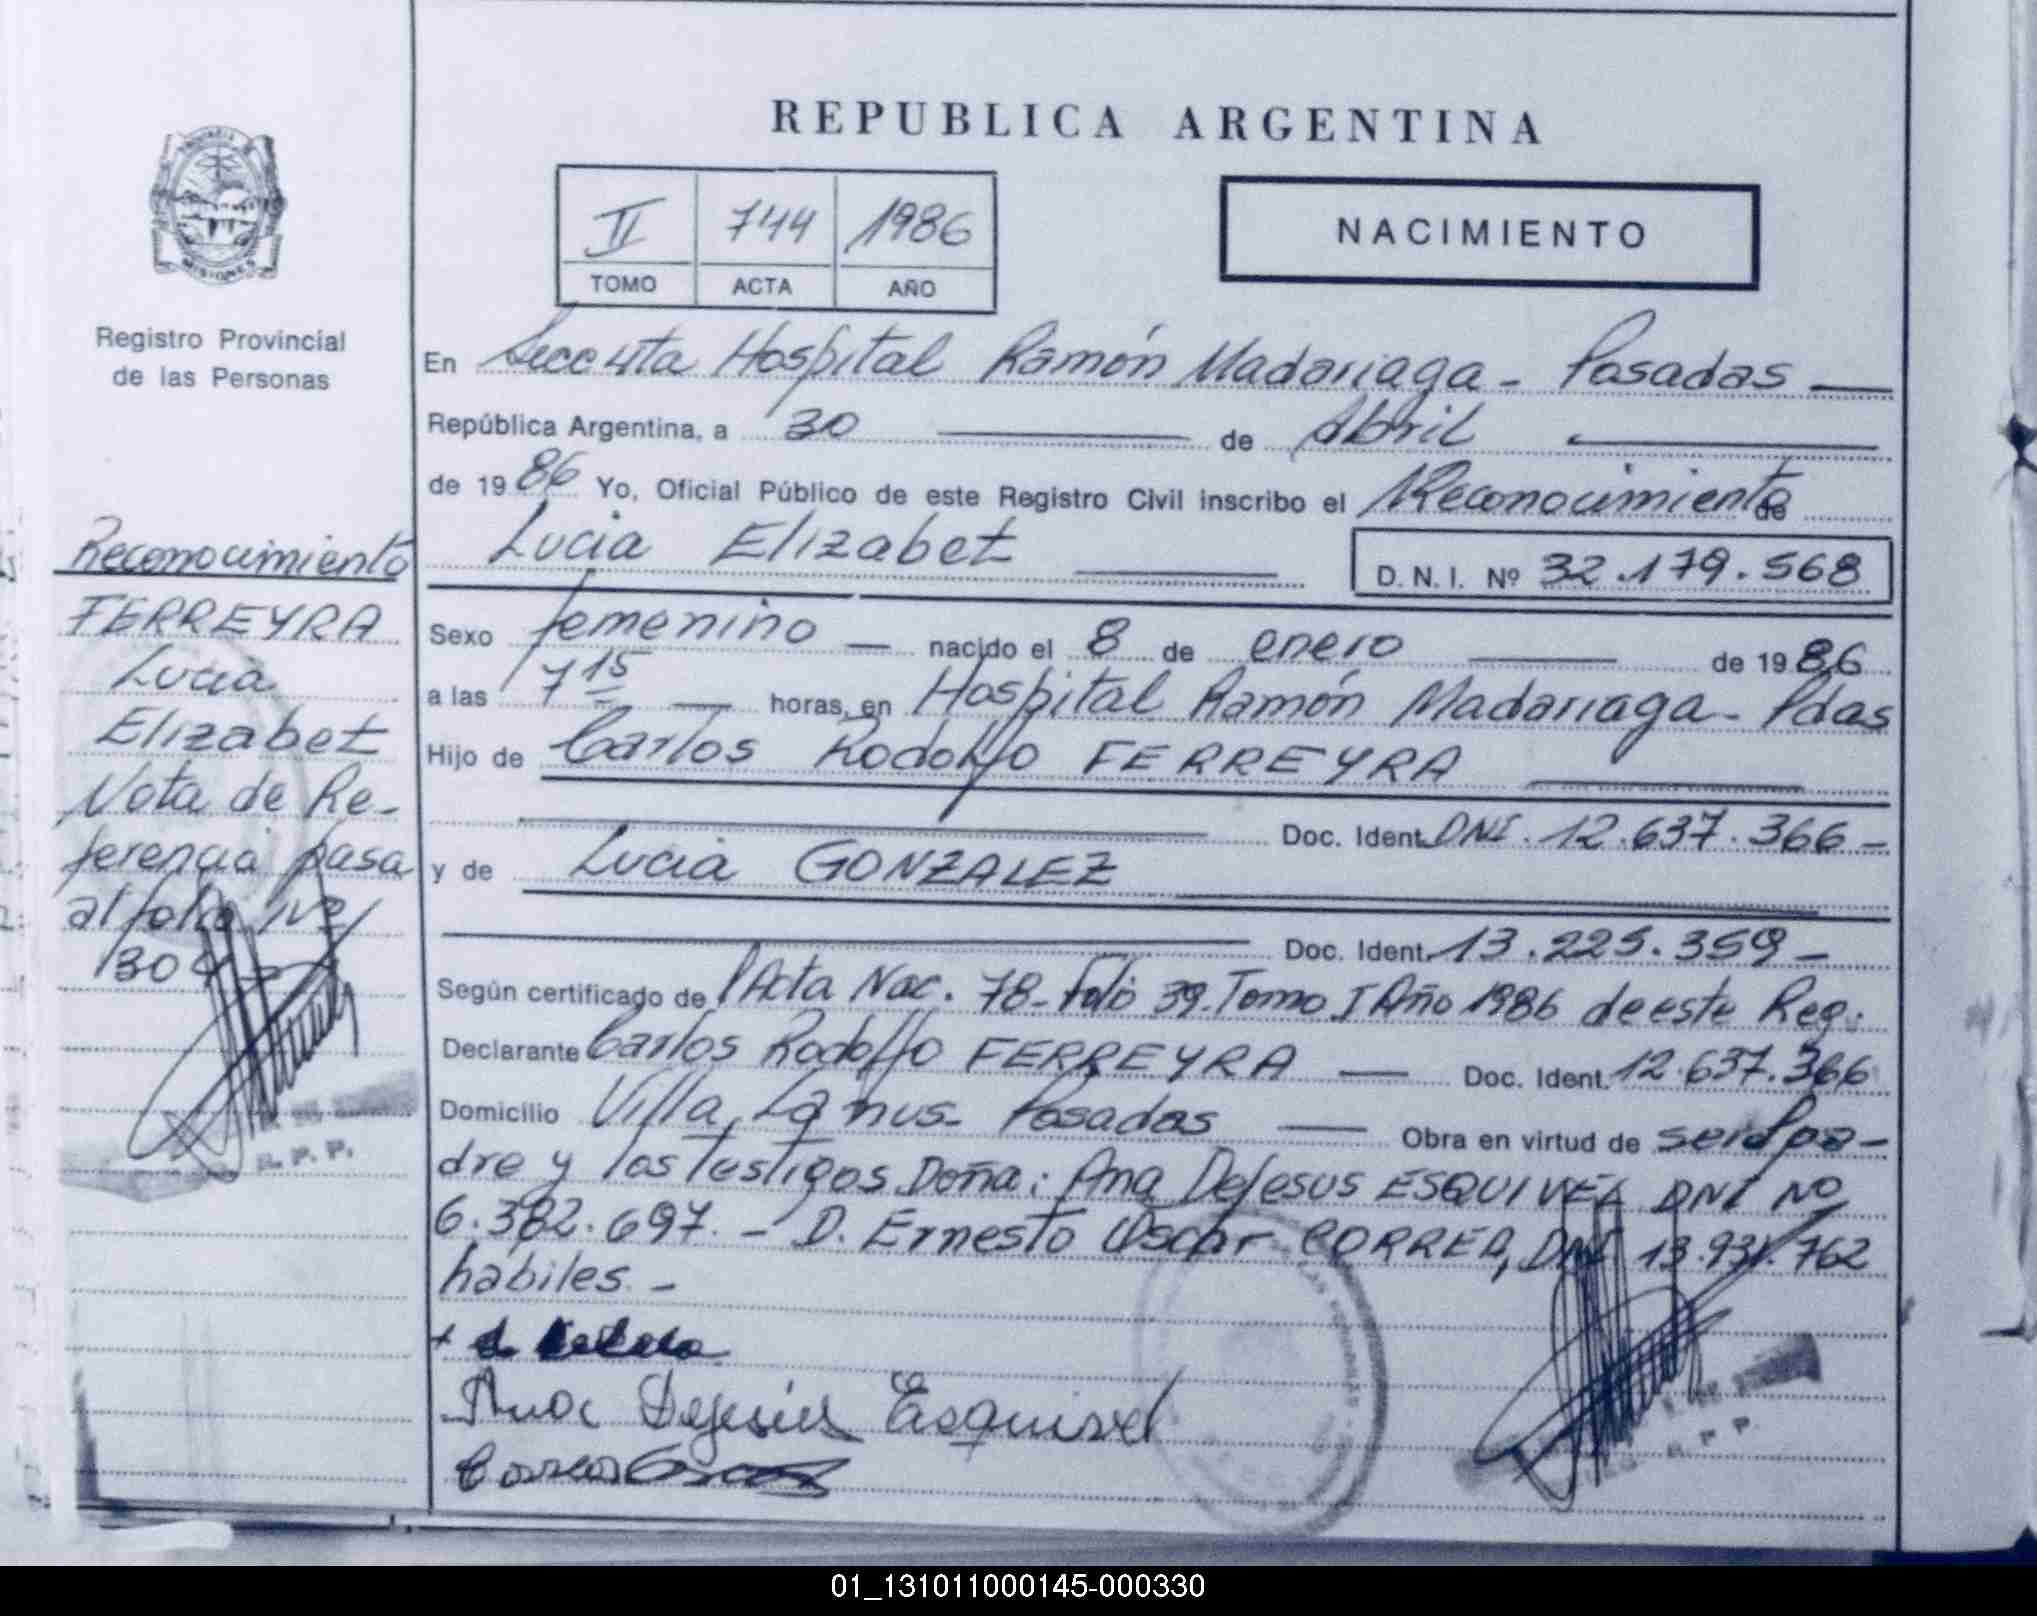 REPUBLICA ARGENTINA
II 744 1986
TOMO ACTA AÑO
NACIMIENTO
MISIONES
Registro Provincial
de las Personas
Reconocimiento
FERREYRA
Lucia
Elizabet
Nota de Re-
ferencia pasa
al folio Nº
130
R. P. P.
En Secc 4ta Hospital Ramón Madariaga - Posadas
República Argentina, a 30 de Abril
de 1986 Yo, Oficial Público de este Registro Civil inscribo el Reconocimiento de
Lucia Elizabet D. N. I. Nº 32.179.568
Sexo femenino nacido el 8 de enero de 1986
a las 7 15 horas, en Hospital Ramón Madariaga - Pdas
Hijo de Carlos Rodolfo FERREYRA
Doc. Ident. DNI. 12.637.366 -
y de Lucia GONZALEZ
Doc. Ident. 13.225.359 -
Según certificado de Acta Nac. 78 - Folio 39. Tomo I Año 1986 de este Reg.
Declarante Carlos Rodolfo FERREYRA Doc. Ident. 12.637.366
Domicilio Villa Lanus - Posadas Obra en virtud de ser el pa-
dre y los testigos Doña: Ana DeJesus ESQUIVEL DNI Nº
6.382.697. - D. Ernesto Oscar CORREA, DNI 13.931.762
habiles. -
Ana Dejesús Esquivel
Correa
01_131011000145-000330